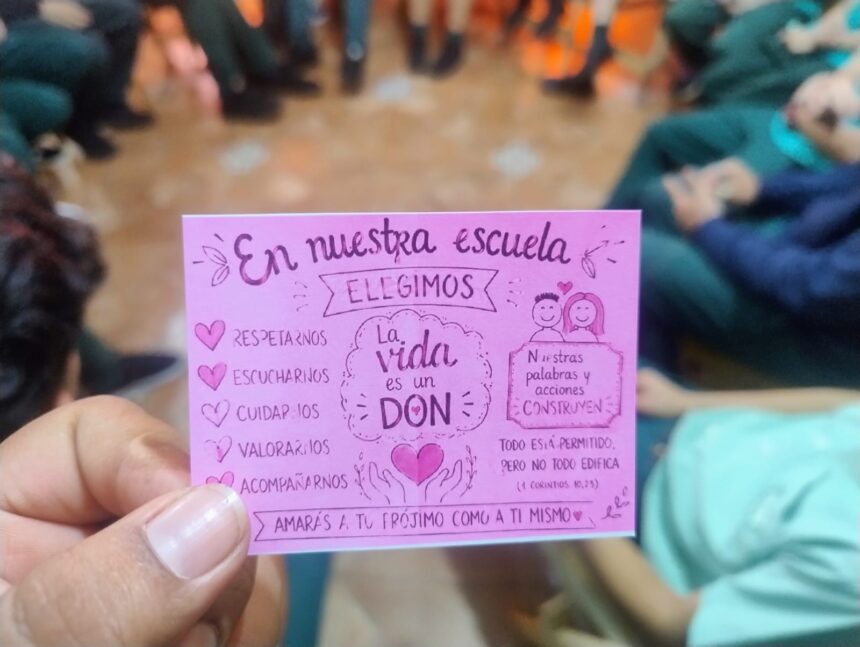 En nuestra escuela
ELEGIMOS
RESPETARNOS
ESCUCHARNOS
CUIDARNOS
VALORARNOS
ACOMPAÑARNOS
La
vida
es un
DON
Nuestras
palabras y
acciones
CONSTRUYEN
TODO ESTÁ PERMITIDO,
PERO NO TODO EDIFICA
(1 CORINTIOS 10,23)
AMARÁS A TU PRÓJIMO COMO A TI MISMO